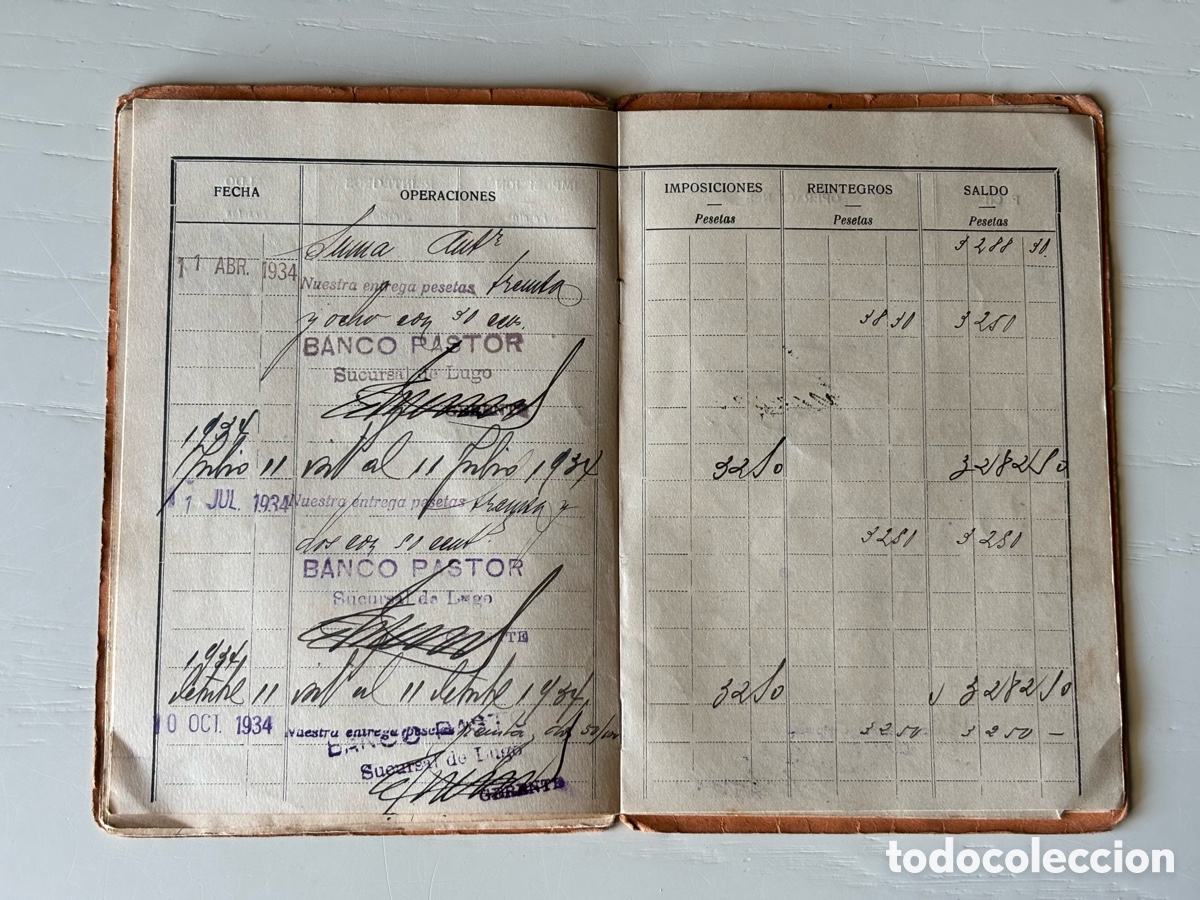 FECHA OPERACIONES IMPOSICIONES REINTEGROS SALDO
Pesetas Pesetas Pesetas
Suma Antr 3288 30
11 ABR. 1934 Nuestra entrega pesetas treinta
y ocho con 30 cts. 38 30 3250
BANCO PASTOR
Sucursal de Lugo
GERENTE
1934
Julio 11 al 11 Julio 1934 32 50 3282 50
11 JUL. 1934 Nuestra entrega pesetas treinta y
dos con 50 cent. 32 50 3250
BANCO PASTOR
Sucursal de Lugo
1934
11 al 11 1934 32 50 3282 50
10 OCT. 1934 Nuestra entrega pesetas treinta dos 50/ 32 50 3250 —
BANCO PAST
Sucursal de Lugo
GERENTE
todocoleccion